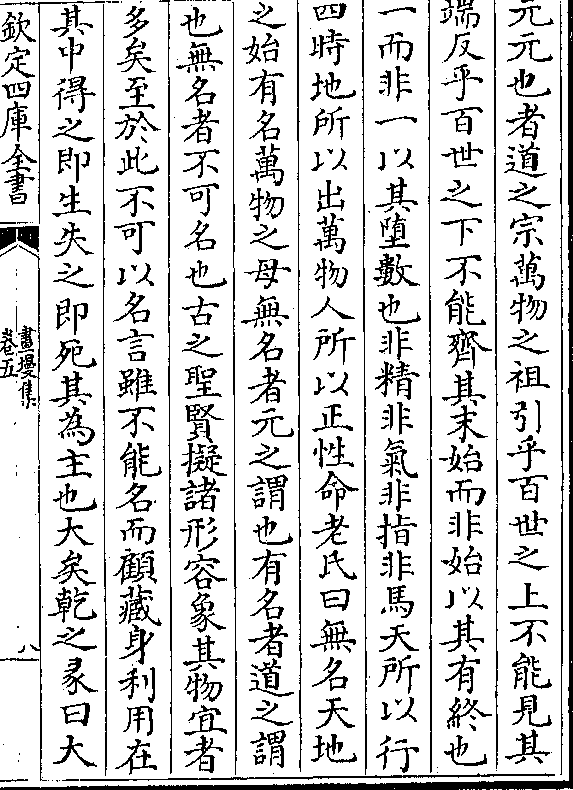 元元也者道之宗萬物之祖引乎百世之上不能見其
端反乎百世之下不能齊其末始而非始以其有終也
一而非一以其墮數也非精非氣非指非馬天所以行
四時地所以出萬物人所以正性命老氏曰無名天地
之始有名萬物之母無名者元之謂也有名者道之謂
也無名者不可名也古之聖賢擬諸形容象其物宜者
多矣至於此不可以名言雖不能名而顧藏身利用在
其中得之即生失之即死其為主也大矣乾之彖曰大
欽定四庫全書
畫墁集
卷五
八